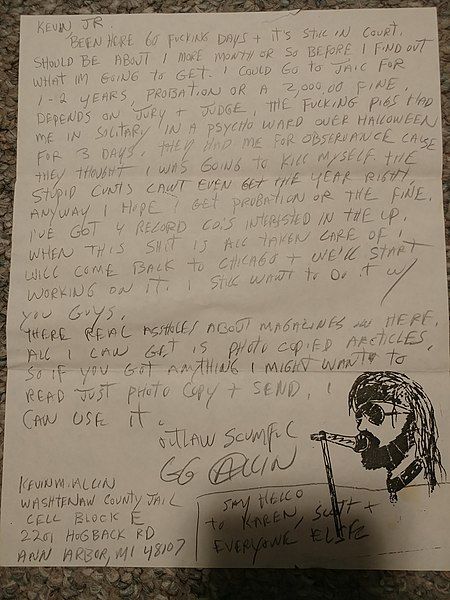 KEVIN JR.
BEEN HERE 60 FUCKING DAYS + IT'S STILL IN COURT.
SHOULD BE ABOUT 1 MORE MONTH OR SO BEFORE I FIND OUT
WHAT IM GOING TO GET. I COULD GO TO JAIL FOR
1-2 YEARS, PROBATION OR A 2,000.00 FINE.
DEPENDS ON JURY + JUDGE. THE FUCKING PIGS HAD
ME IN SOLITARY IN A PSYCHO WARD OVER HALLOWEEN
FOR 3 DAYS. THEY HAD ME FOR OBSERVANCE CAUSE
THEY THOUGHT I WAS GOING TO KILL MYSELF. THE
STUPID CUNTS CAN'T EVEN GET THE YEAR RIGHT.
ANYWAY I HOPE I GET PROBATION OR THE FINE.
I'VE GOT 4 RECORD CO.'S INTERESTED IN THE LP.
WHEN THIS SHIT IS ALL TAKEN CARE OF I
WILL COME BACK TO CHICAGO + WE'LL START
WORKING ON IT. I STILL WANT TO DO IT W/
YOU GUYS.
THERE REAL ASSHOLES ABOUT MAGAZINES IN HERE.
ALL I CAN GET IS PHOTO COPIED ARTICLES.
SO IF YOU GOT ANYTHING I MIGHT WANT TO
READ JUST PHOTO COPY + SEND. I
CAN USE IT.
OUTLAW SCUMFUC
GG ALLIN
KEVIN M. ALLIN
WASHTENAW COUNTY JAIL
CELL BLOCK E
2201 HOGBACK RD
ANN ARBOR, MI 48107
SAY HELLO
TO KAREN, SCOTT +
EVERYONE ELSE